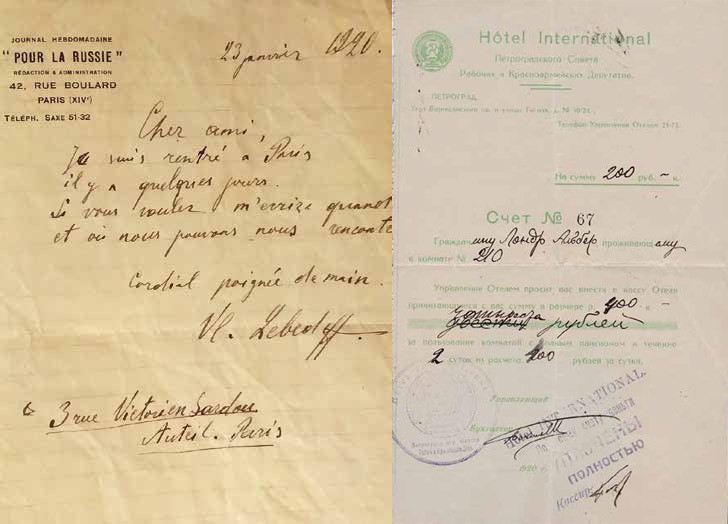 JOURNAL HEBDOMADAIRE
"POUR LA RUSSIE"
RÉDACTION & ADMINISTRATION
42, RUE BOULARD
PARIS (XIVᵉ)
TÉLÉPH. SAXE 51-32
23 janvier 1920.
Cher ami,
Je suis rentré à Paris
il y a quelques jours.
Si vous voulez m'ecrize quand
et où nous pouvons nous rencontre
Cordial poignée de main.
Vl. Lebedeff.
3 rue Victorien Sardou
Auteil. Paris
Hôtel International
Петроградского Совета
Рабочих и Красноармейских Депутатов.
ПЕТРОГРАД,
и улицы Гоголя, д. №
Телефон Управления Отелем 21-72.
На сумму 200 руб. – к.
Счет № 67
Гражданину Лондр Альбер проживающему
в комнате № 210
Управление Отелем просит вас внести в кассу Отеля
причитающуюся с вас сумму в размере р. 400 – к.
рублей
за пользование комнатой с пансионом в течении
2 суток из расчета 200 рублей за сутки.
Управляющий
Бухгалтер
Hôtel INTERNATIONAL
деньги
УПЛАЧЕНЫ
ПОЛНОСТЬЮ
Кассир
1920 г.